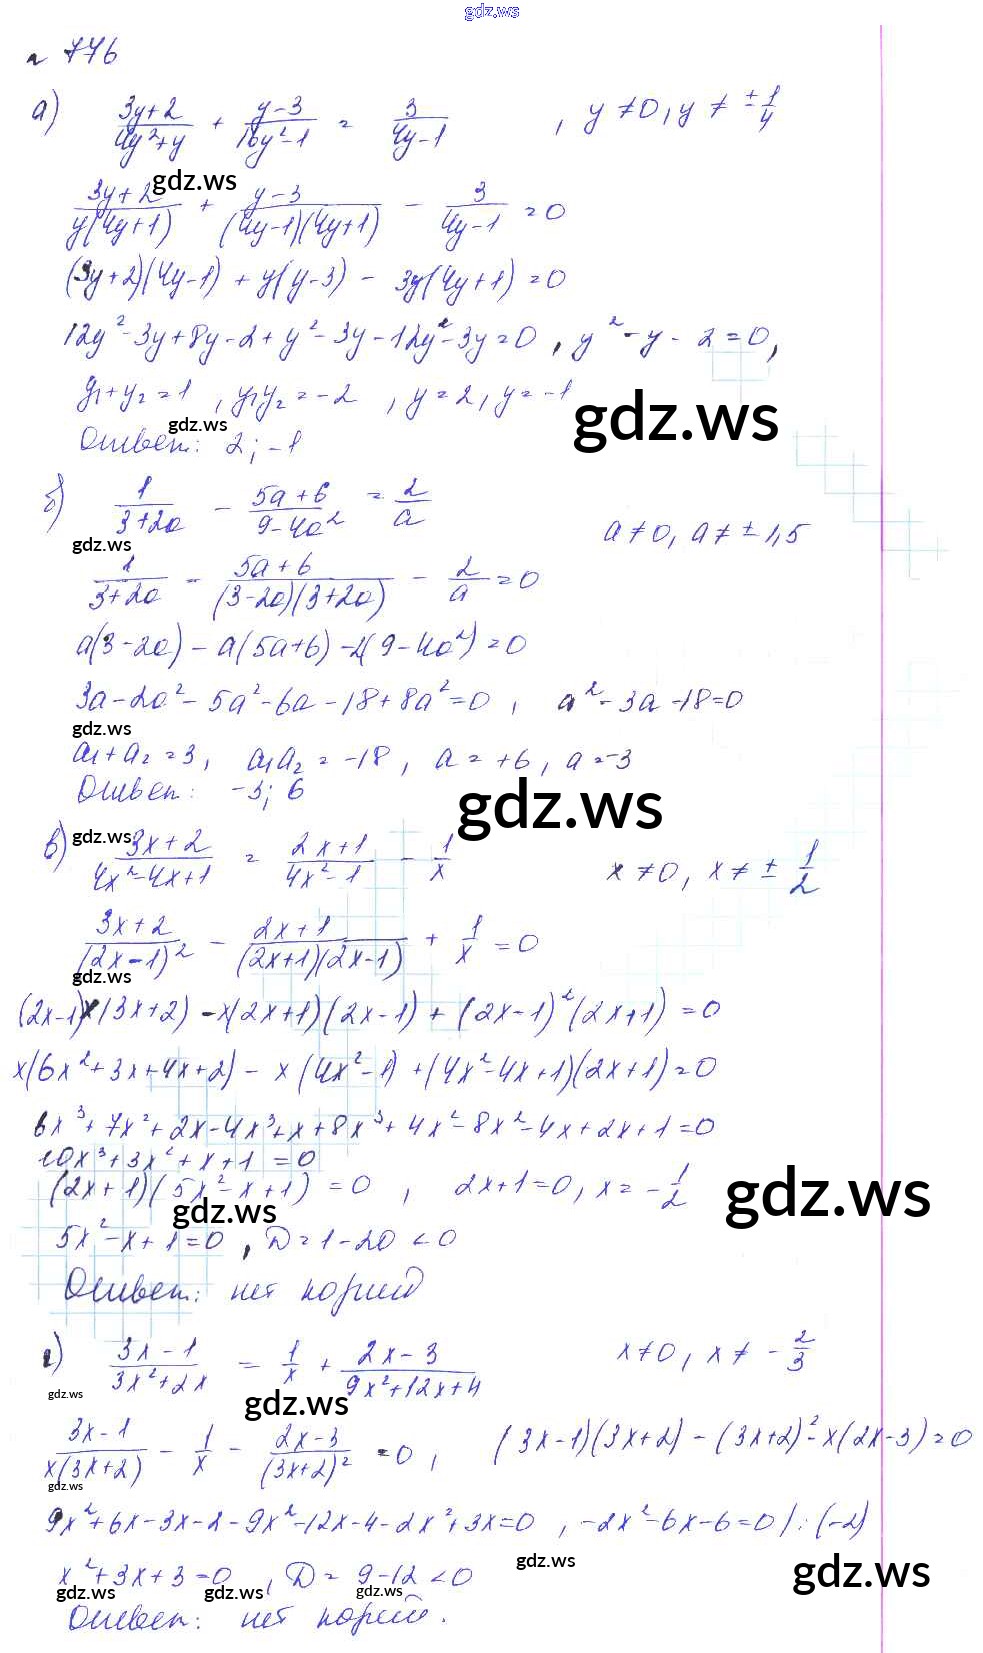 gdz.ws
№ 776
а) (3y+2)/(4y²+y) + (y-3)/(16y²-1) = 3/(4y-1) , y≠0, y≠ ±1/4
gdz.ws
(3y+2)/(y(4y+1)) + (y-3)/((4y-1)(4y+1)) - 3/(4y-1) = 0
(3y+2)(4y-1) + y(y-3) - 3y(4y+1) = 0
12y²-3y+8y-2+y²-3y-12y²-3y=0 , y²-y-2=0,
y₁+y₂=1 , y₁y₂=-2 , y=2, y=-1
gdz.ws
gdz.ws
Ответ: 2; -1
б) 1/(3+2a) - (5a+6)/(9-4a²) = 2/a
a≠0, a≠ ±1,5
gdz.ws
1/(3+2a) - (5a+6)/((3-2a)(3+2a)) - 2/a = 0
a(3-2a) - a(5a+6) - 2(9-4a²) = 0
3a-2a²-5a²-6a-18+8a²=0 , a²-3a-18=0
gdz.ws
a₁+a₂=3, a₁a₂=-18, a=+6, a=-3
Ответ: -3; 6
gdz.ws
gdz.ws
в) (3x+2)/(4x²-4x+1) = (2x+1)/(4x²-1) - 1/x x≠0, x≠ ± 1/2
(3x+2)/(2x-1)² - (2x+1)/((2x+1)(2x-1)) + 1/x = 0
gdz.ws
(2x-1)x(3x+2) - x(2x+1)(2x-1) + (2x-1)²(2x+1) = 0
x(6x²+3x+4x+2) - x(4x²-1) + (4x²-4x+1)(2x+1) = 0
6x³+7x²+2x-4x³+x+8x³+4x²-8x²-4x+2x+1=0
10x³+3x²+x+1=0
(2x+1)(5x²-x+1) = 0 , 2x+1=0, x=-1/2
gdz.ws
gdz.ws
5x²-x+1=0 , D=1-20<0
Ответ: нет корней
г) (3x-1)/(3x²+2x) = 1/x + (2x-3)/(9x²+12x+4) x≠0, x≠ -2/3
gdz.ws
gdz.ws
(3x-1)/(x(3x+2)) - 1/x - (2x-3)/(3x+2)² = 0 , (3x-1)(3x+2) - (3x+2)² - x(2x-3) = 0
gdz.ws
9x²+6x-3x-2-9x²-12x-4-2x²+3x=0 , -2x²-6x-6=0 /:(-2)
gdz.ws
gdz.ws
x²+3x+3=0 , D= 9-12<0
gdz.ws
gdz.ws
gdz.ws
Ответ: нет корней.